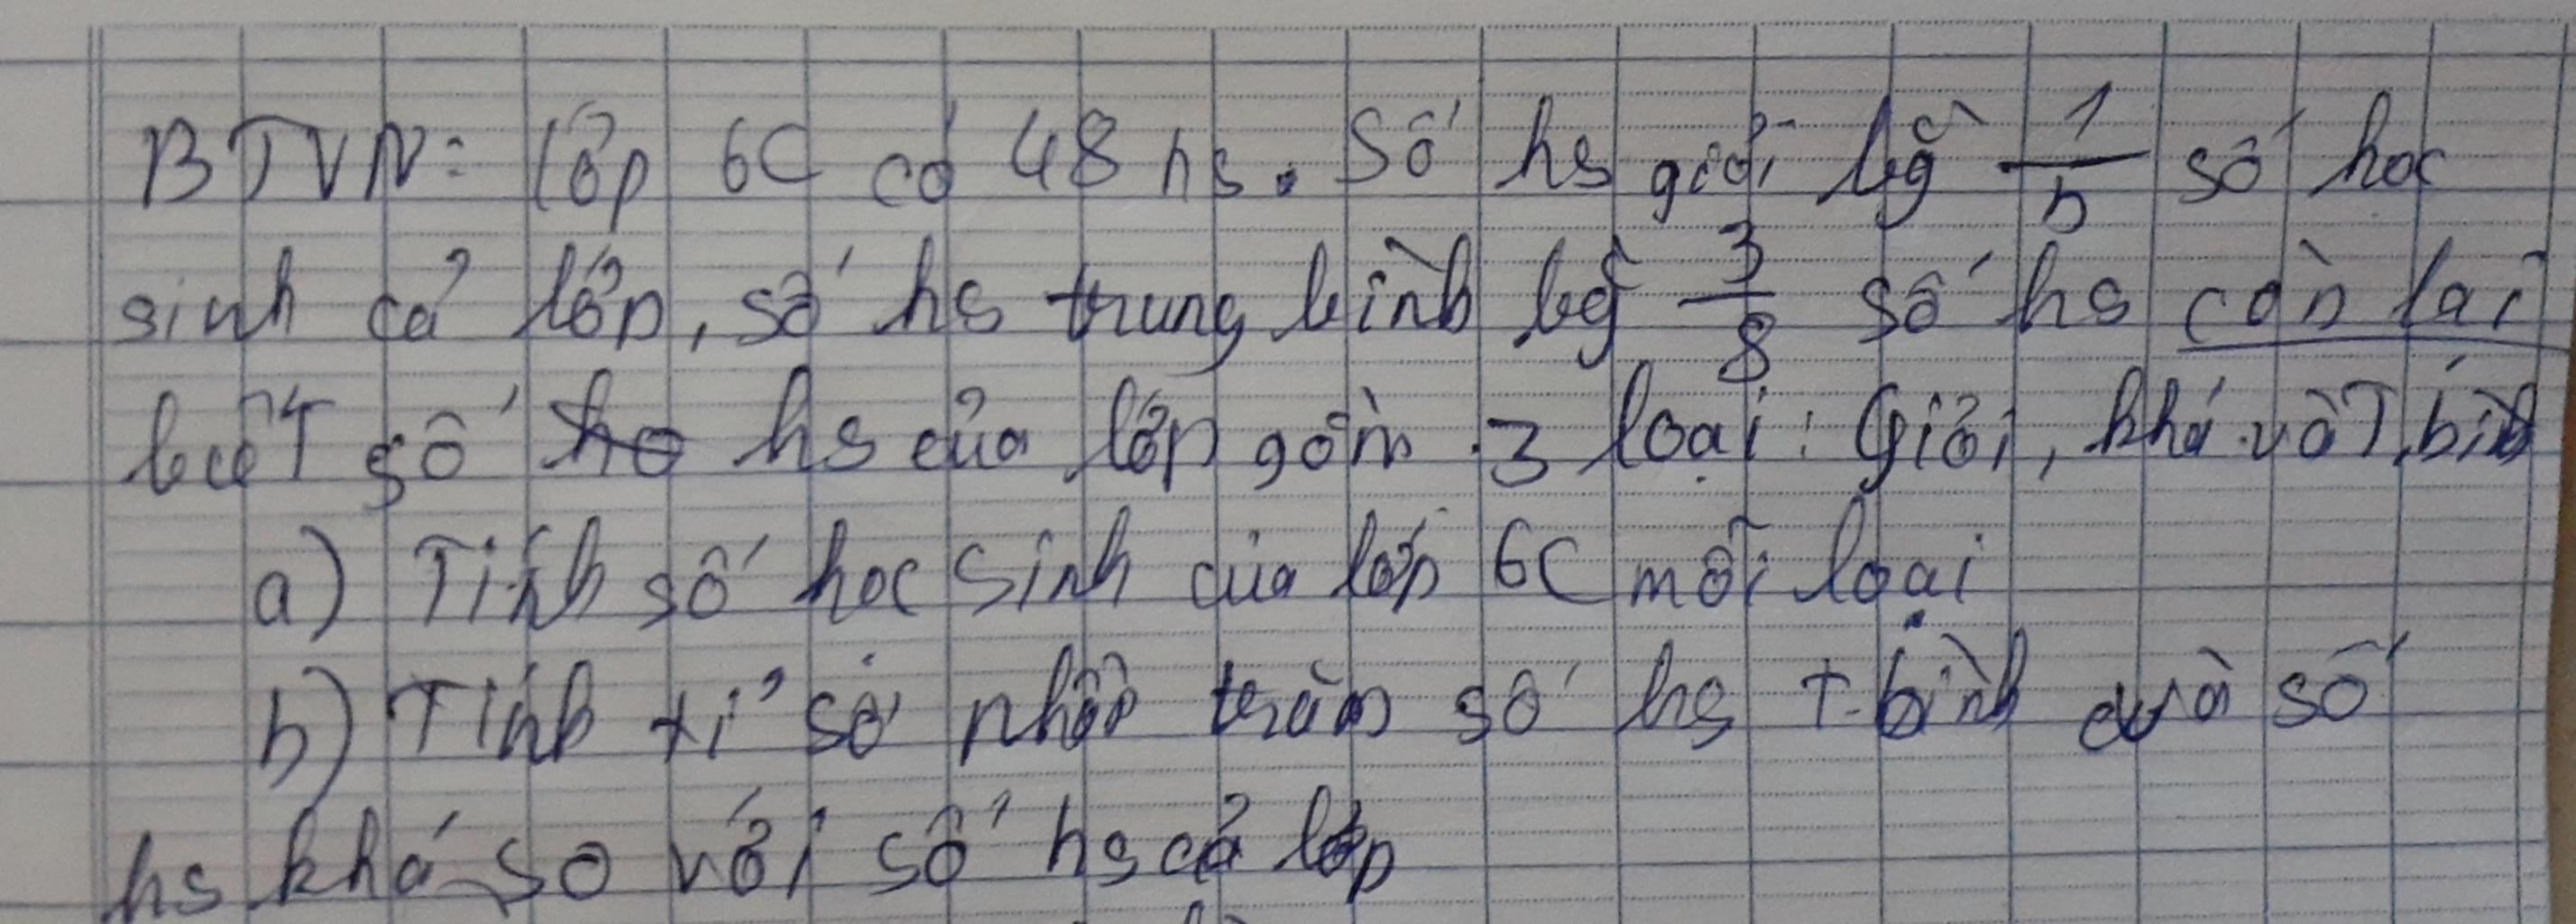 BTVN: lớp 6C có 48 hs. Số hs giỏi bg 1/6 số học
sinh cả lớp, số hs trung bình bg 3/8 số hs còn lại
biết số hs của lớp gồm 3 loại: Giỏi, khá và T.bình
a) Tính số học sinh của lớp 6C mỗi loại
b) Tính tỉ số phần trăm số hs T.bình và số
hs khá so với số hs cả lớp